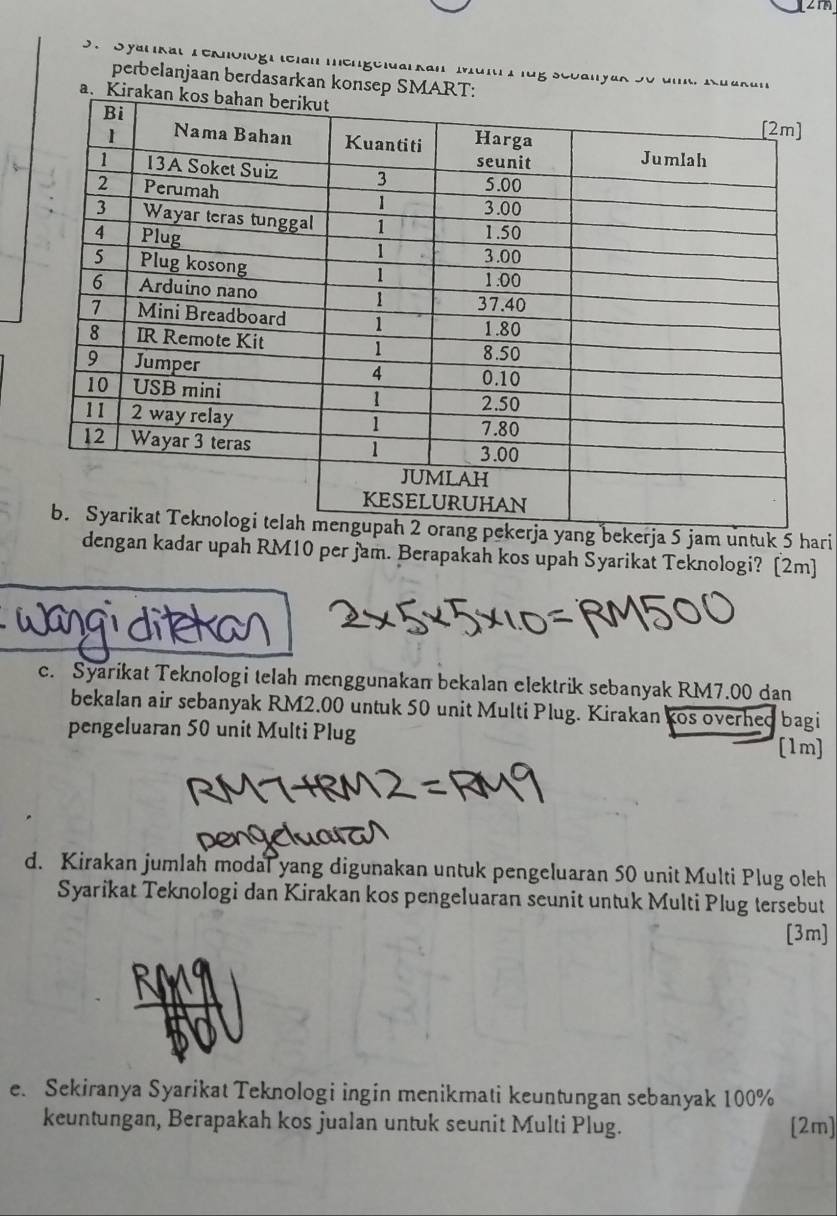 [2m]
5. Syarikat Teknologi telah mengeluarkan Multi Plug sebanyak 50 unit.
perbelanjaan berdasarkan konsep SMART:
a. Kirakan kos bahan berikut
[2m]
Bi
l Nama Bahan Kuantiti Harga seunit Jumlah
1 13A Soket Suiz 3 5.00
2 Perumah 1 3.00
3 Wayar teras tunggal 1 1.50
4 Plug 1 3.00
5 Plug kosong 1 1.00
6 Arduino nano 1 37.40
7 Mini Breadboard 1 1.80
8 IR Remote Kit 1 8.50
9 Jumper 4 0.10
10 USB mini 1 2.50
11 2 way relay 1 7.80
12 Wayar 3 teras 1 3.00
JUMLAH
KESELURUHAN
b. Syarikat Teknologi telah mengupah 2 orang pekerja yang bekerja 5 jam untuk 5 hari
dengan kadar upah RM10 per jam. Berapakah kos upah Syarikat Teknologi? [2m]
wangi ditekan 2x5x5x10=RM500
c. Syarikat Teknologi telah menggunakan bekalan elektrik sebanyak RM7.00 dan
bekalan air sebanyak RM2.00 untuk 50 unit Multi Plug. Kirakan kos overhed bagi
pengeluaran 50 unit Multi Plug
[1m]
RM7+RM2=RM9
pengeluaran
d. Kirakan jumlah modal yang digunakan untuk pengeluaran 50 unit Multi Plug oleh
Syarikat Teknologi dan Kirakan kos pengeluaran seunit untuk Multi Plug tersebut
[3m]
RM9
50
e. Sekiranya Syarikat Teknologi ingin menikmati keuntungan sebanyak 100%
keuntungan, Berapakah kos jualan untuk seunit Multi Plug. [2m]